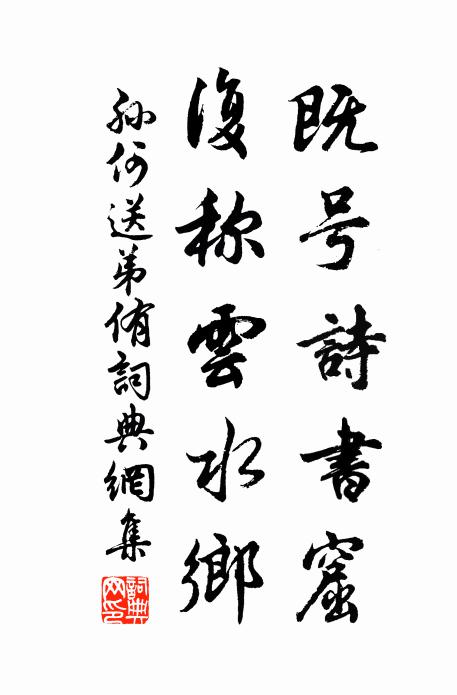 既号詩書窟
復称雲水鄉
孙何送弟侑詞典網集
詞典网印